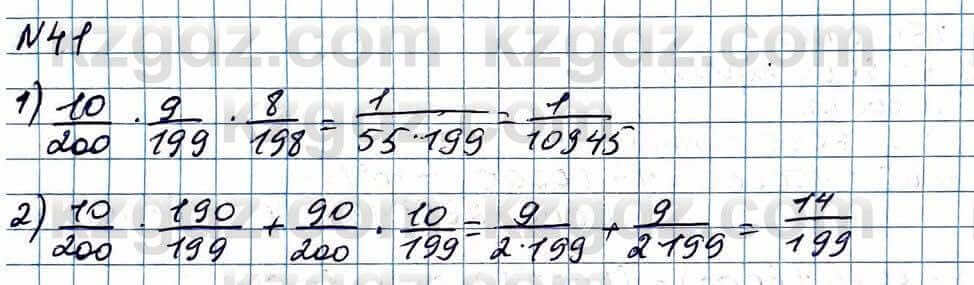 kzgdz.com
N41
1) 10/200 · 9/199 · 8/198 = 1/55·199 = 1/10945
2) 10/200 · 190/199 + 90/200 · 10/199 = 9/2·199 + 9/2·199 = 14/199